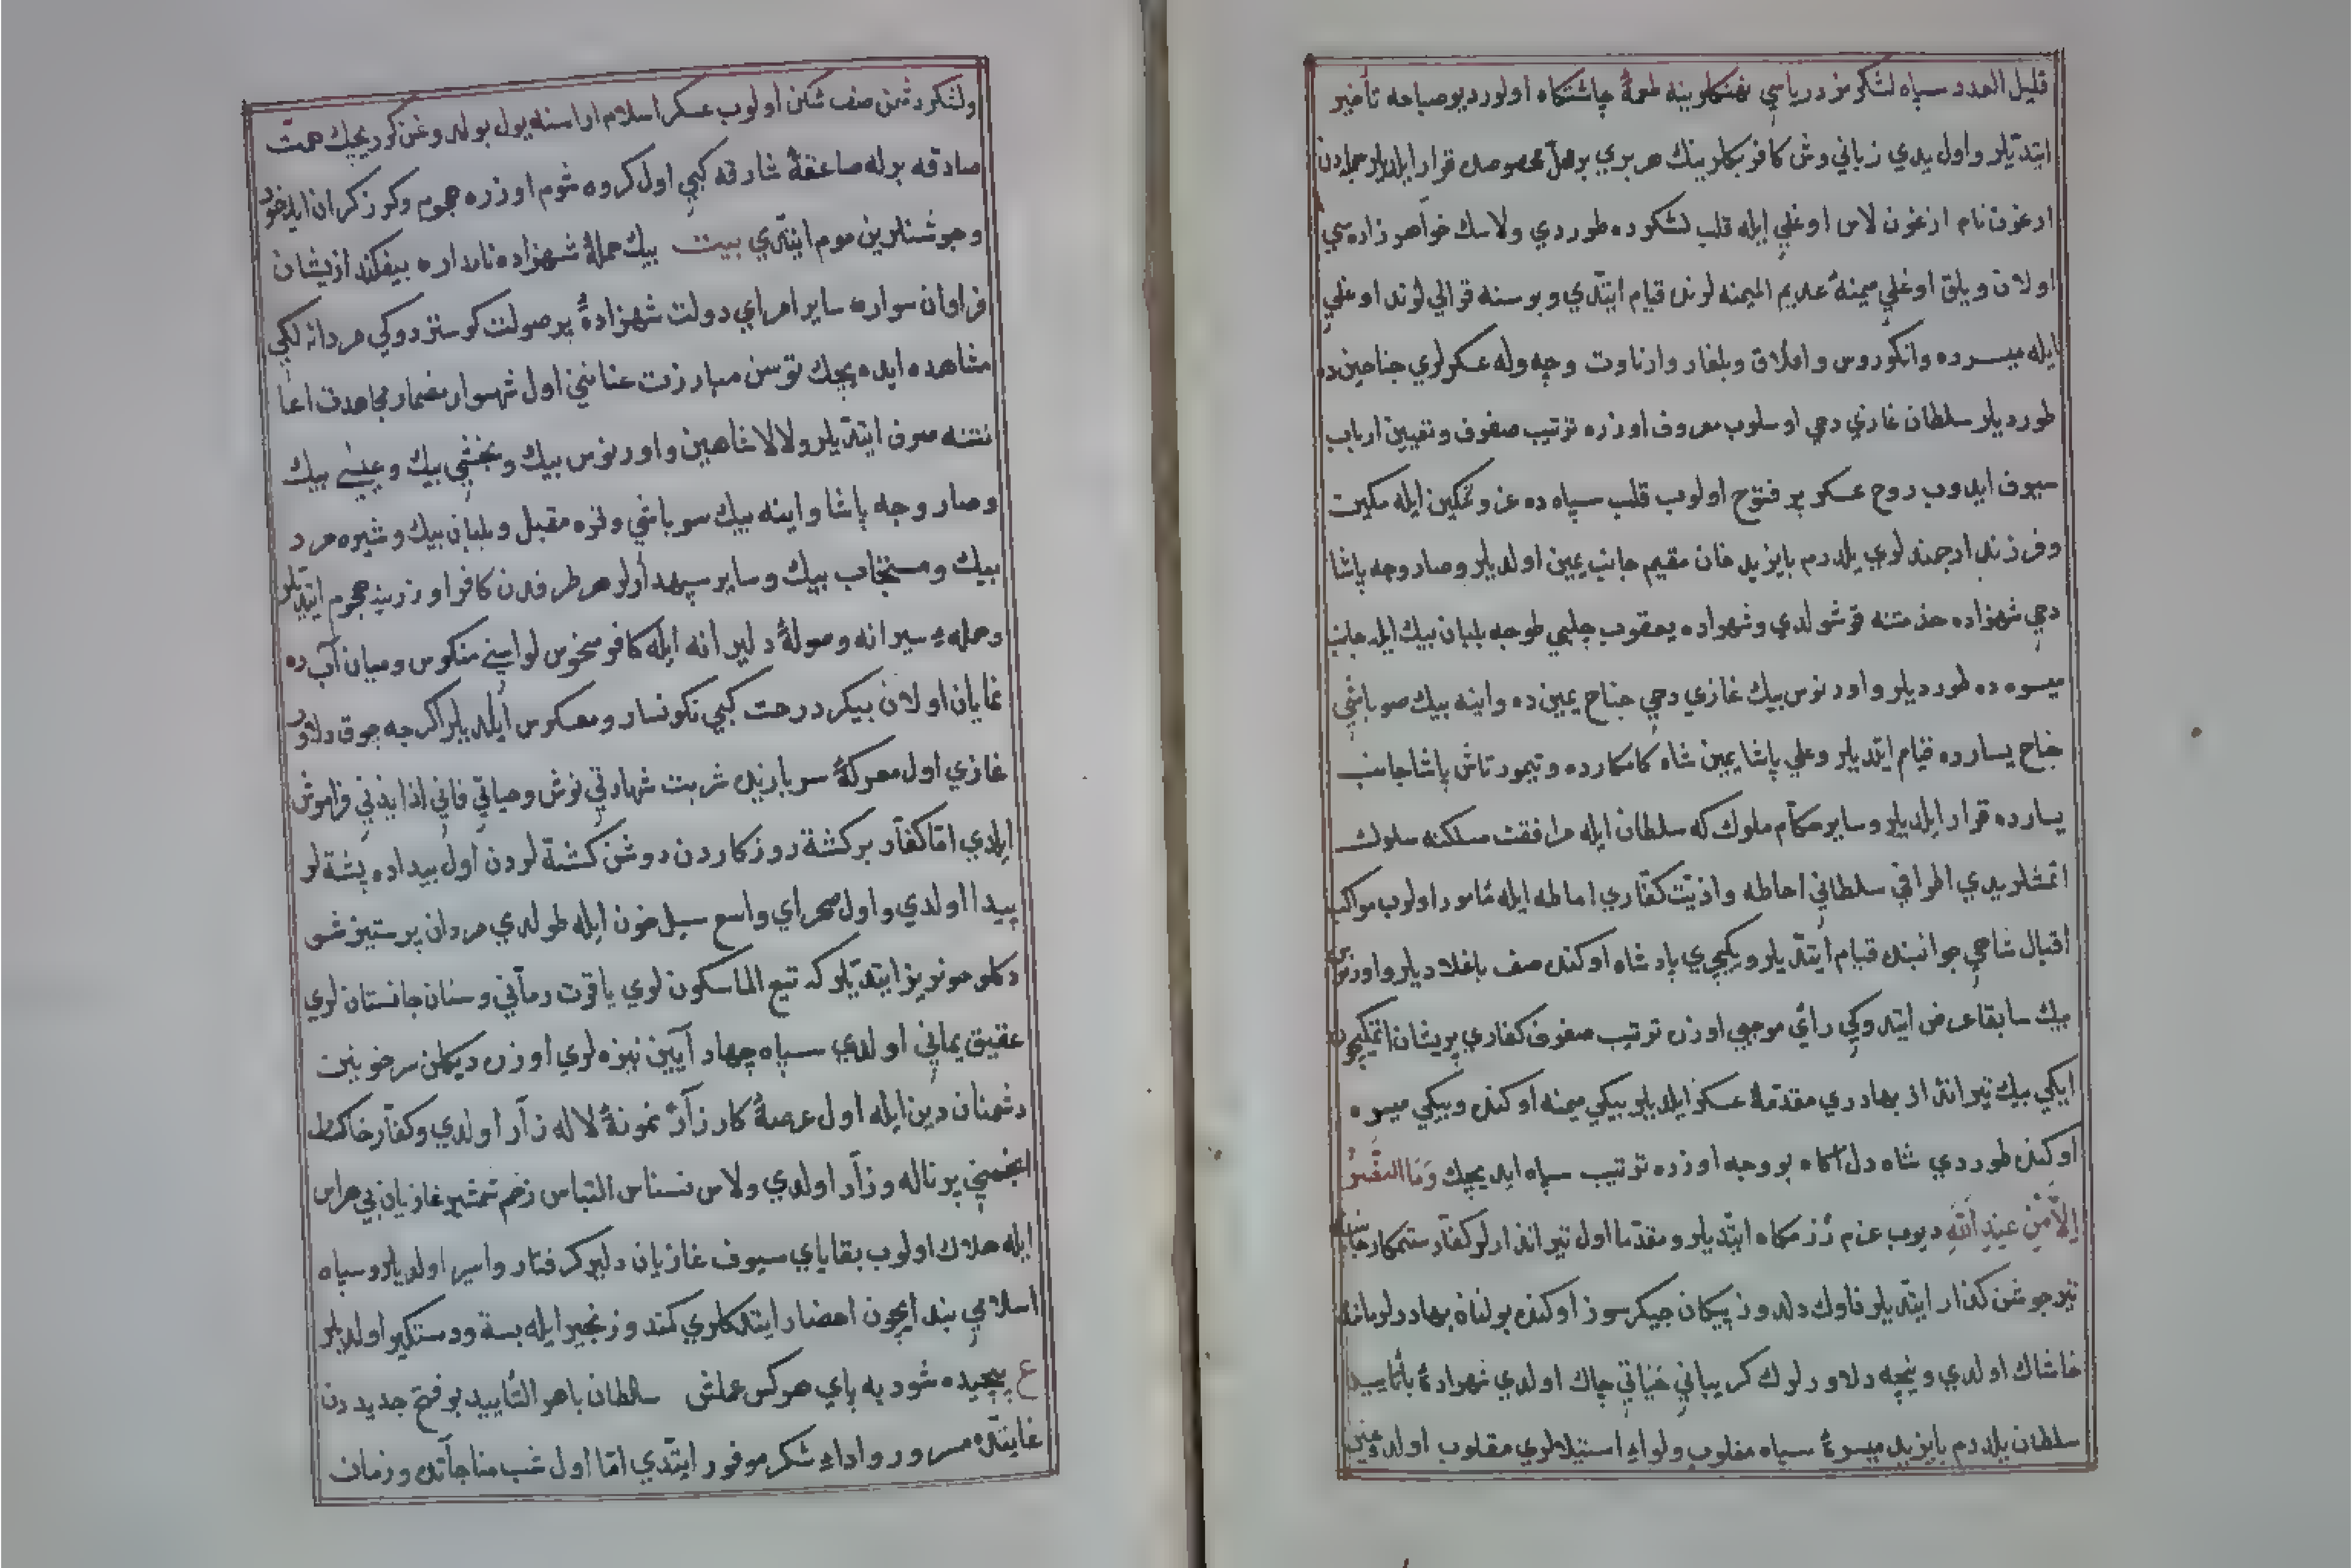 قليل العدد سپاه لشكرمز درياسي نهنكلرينه طعمهٔ چاشتكاه اولور ديو صباحه تأخير
ايتديلر واول يدي زباني وش كافر بكلرينك هر بري بر محل مخصوصده قرار ايلديلر جمله دن
ارغون نام ازغون لاس اوغلي ايله قلب لشكرده طوردي ولاسك خواهر زاده سي
اولان ويلق اوغلي ميمنهٔ عديم الميمنه لرنده قيام ايتدي وبوسنه قرالي لوند اوغلي
ايله ميسرده وانكوروس وافلاق وبلغار وارناوت وچه وله عسكرلري جناحينده
طورديلر سلطان غازي دخي اسلوب معروف اوزره ترتيب صفوف وتعيين ارباب
سيوف ايدوب روح عسكر پر فتوح اولوب قلب سپاه ده عز وتمكين ايله مكين
وفرزند ارجمندلري يلدرم بايزيد خان مقيم جانب يمين اولديلر وصاروجه پاشا
دخي شهزاده خدمتنه قوشولدي وشهزاده يعقوب چلبي طوجه بلبان بيك ايله جانب
ميسره ده طورديلر واورنوس بيك غازي دخي جناح يمين ده واينه بيك صوباشي
جناح يسارده قيام ايتديلر وعلي پاشا يمين شاه كامكارده وتيمورتاش پاشا جانب
يسارده قرار ايلديلر وساير حكام ملوك كه سلطان ايله مرافقت مسلكنه سلوك
اتمشلريدي اطراف سلطاني احاطه واذيت كفاري اماطه ايله مأمور اولوب مواكب
اقبال شاهي جوانبنده قيام ايتديلر ويكيچري پادشاه اوكنده صف باغلاديلر واورنوس
بيك سابقا عرض ايتدوكي رأي موجبي اوزره ترتيب صفوف كفاري پريشان اتمكيچون
ايكي بيك تيرانداز بهادري مقدمهٔ عسكر ايلديلر بيكي ميمنه اوكنده وبيكي ميسره
اوكنده طوردي شاه دل آكاه بو وجه اوزره ترتيب سپاه ايديجك وَمَا النَّصْرُ
إِلَّا مِنْ عِنْدِ اللَّهِ ديوب عزم رزمكاه ايتديلر ومقدما اول تيراندازلر كفار ستمكار جانبنه
تير جوشن كذار ايتديلر ناوك دلدوز پيكان جيكرسوز اوكنده بولنان بهادرلر مانند
خاشاك اولدي ونيجه دلاورلرك كريباني حياتي چاك اولدي شهزادهٔ باتأييد
سلطان يلدرم بايزيد ميسرهٔ سپاه مغلوب ولواء استيلالري مقلوب اولدوغين
ولشكر دشمن صف شكن اولوب عسكر اسلام اراسنه يول بولدوغن كوريجك همت
صادقه برله صاعقهٔ شارقه كبي اول كروه شوم اوزره هجوم وكرز كران ايله خود
وجوشنلرين موم ايتدي بيت بيك حملهٔ شهزاده نامداره بيفكند ازيشان
فراوان سواره ساير امراي دولت شهزادهٔ پر صولت كوستردوكي مردانه لكي
مشاهده ايده يجك توسن مبارزت عنانيني اول شهسوار مضمار مجاهدت اعا
نتنه صرف ايتديلر ولالا شاهين واورنوس بيك ويخشي بيك وعيسى بيك
وصاروجه پاشا واينه بيك سوباشي وقره مقبل وبلبان بيك وشيره مرد
بيك ومستجاب بيك وساير سپهدارلر هر طرفدن كافر اوزرينه هجوم ايتديلر
وحملهٔ شيرانه وصولهٔ دليرانه ايله كافر منحوس لواسني منكوس وميان آب ده
نمايان اولان پيكر درخت كبي نكونسار ومعكوس ايلديلر اكرچه چوق دلاور
غازي اول معركهٔ سربازيده شربت شهادتي نوش وحياتي فاني لذايذني فراموش
ايلدي اما كفار بركشتهٔ روزكاردن دوشن كشته لردن اول بيداده پشته لر
پيدا اولدي واول صحراي واسع سيل خون ايله طولدي مردان پر ستيز شو
دكلو خونريز ايتديلر كه تيغ الماسكون لري ياقوت رماني وسنان جانستان لري
عقيق يماني اولدي سپاه جهاد آيين نيزه لري اوزره ديكلن سر خونين
دشمنان دين ايله اول عرصهٔ كارزار نمونهٔ لاله زار اولدي وكفار خاكسار
انجمني پر ناله وزار اولدي ولاس نسناس التباس زخم شمشير غازيان بي هراس
ايله هلاك اولوب بقاياي سيوف غازيان دلير كرفتار واسير اولديلر وسپاه
اسلامي بند ايچون احضار ايتدكلري كمند وزنجير ايله بسته ودستكير اولديلر
ع پيچيده شود به پاي هر كس عملش سلطان باهر التأييد بو فتح جديددن
غايتده مسرور واداء شكر موفور ايتدي اما اول شب مناجاتده وزمان